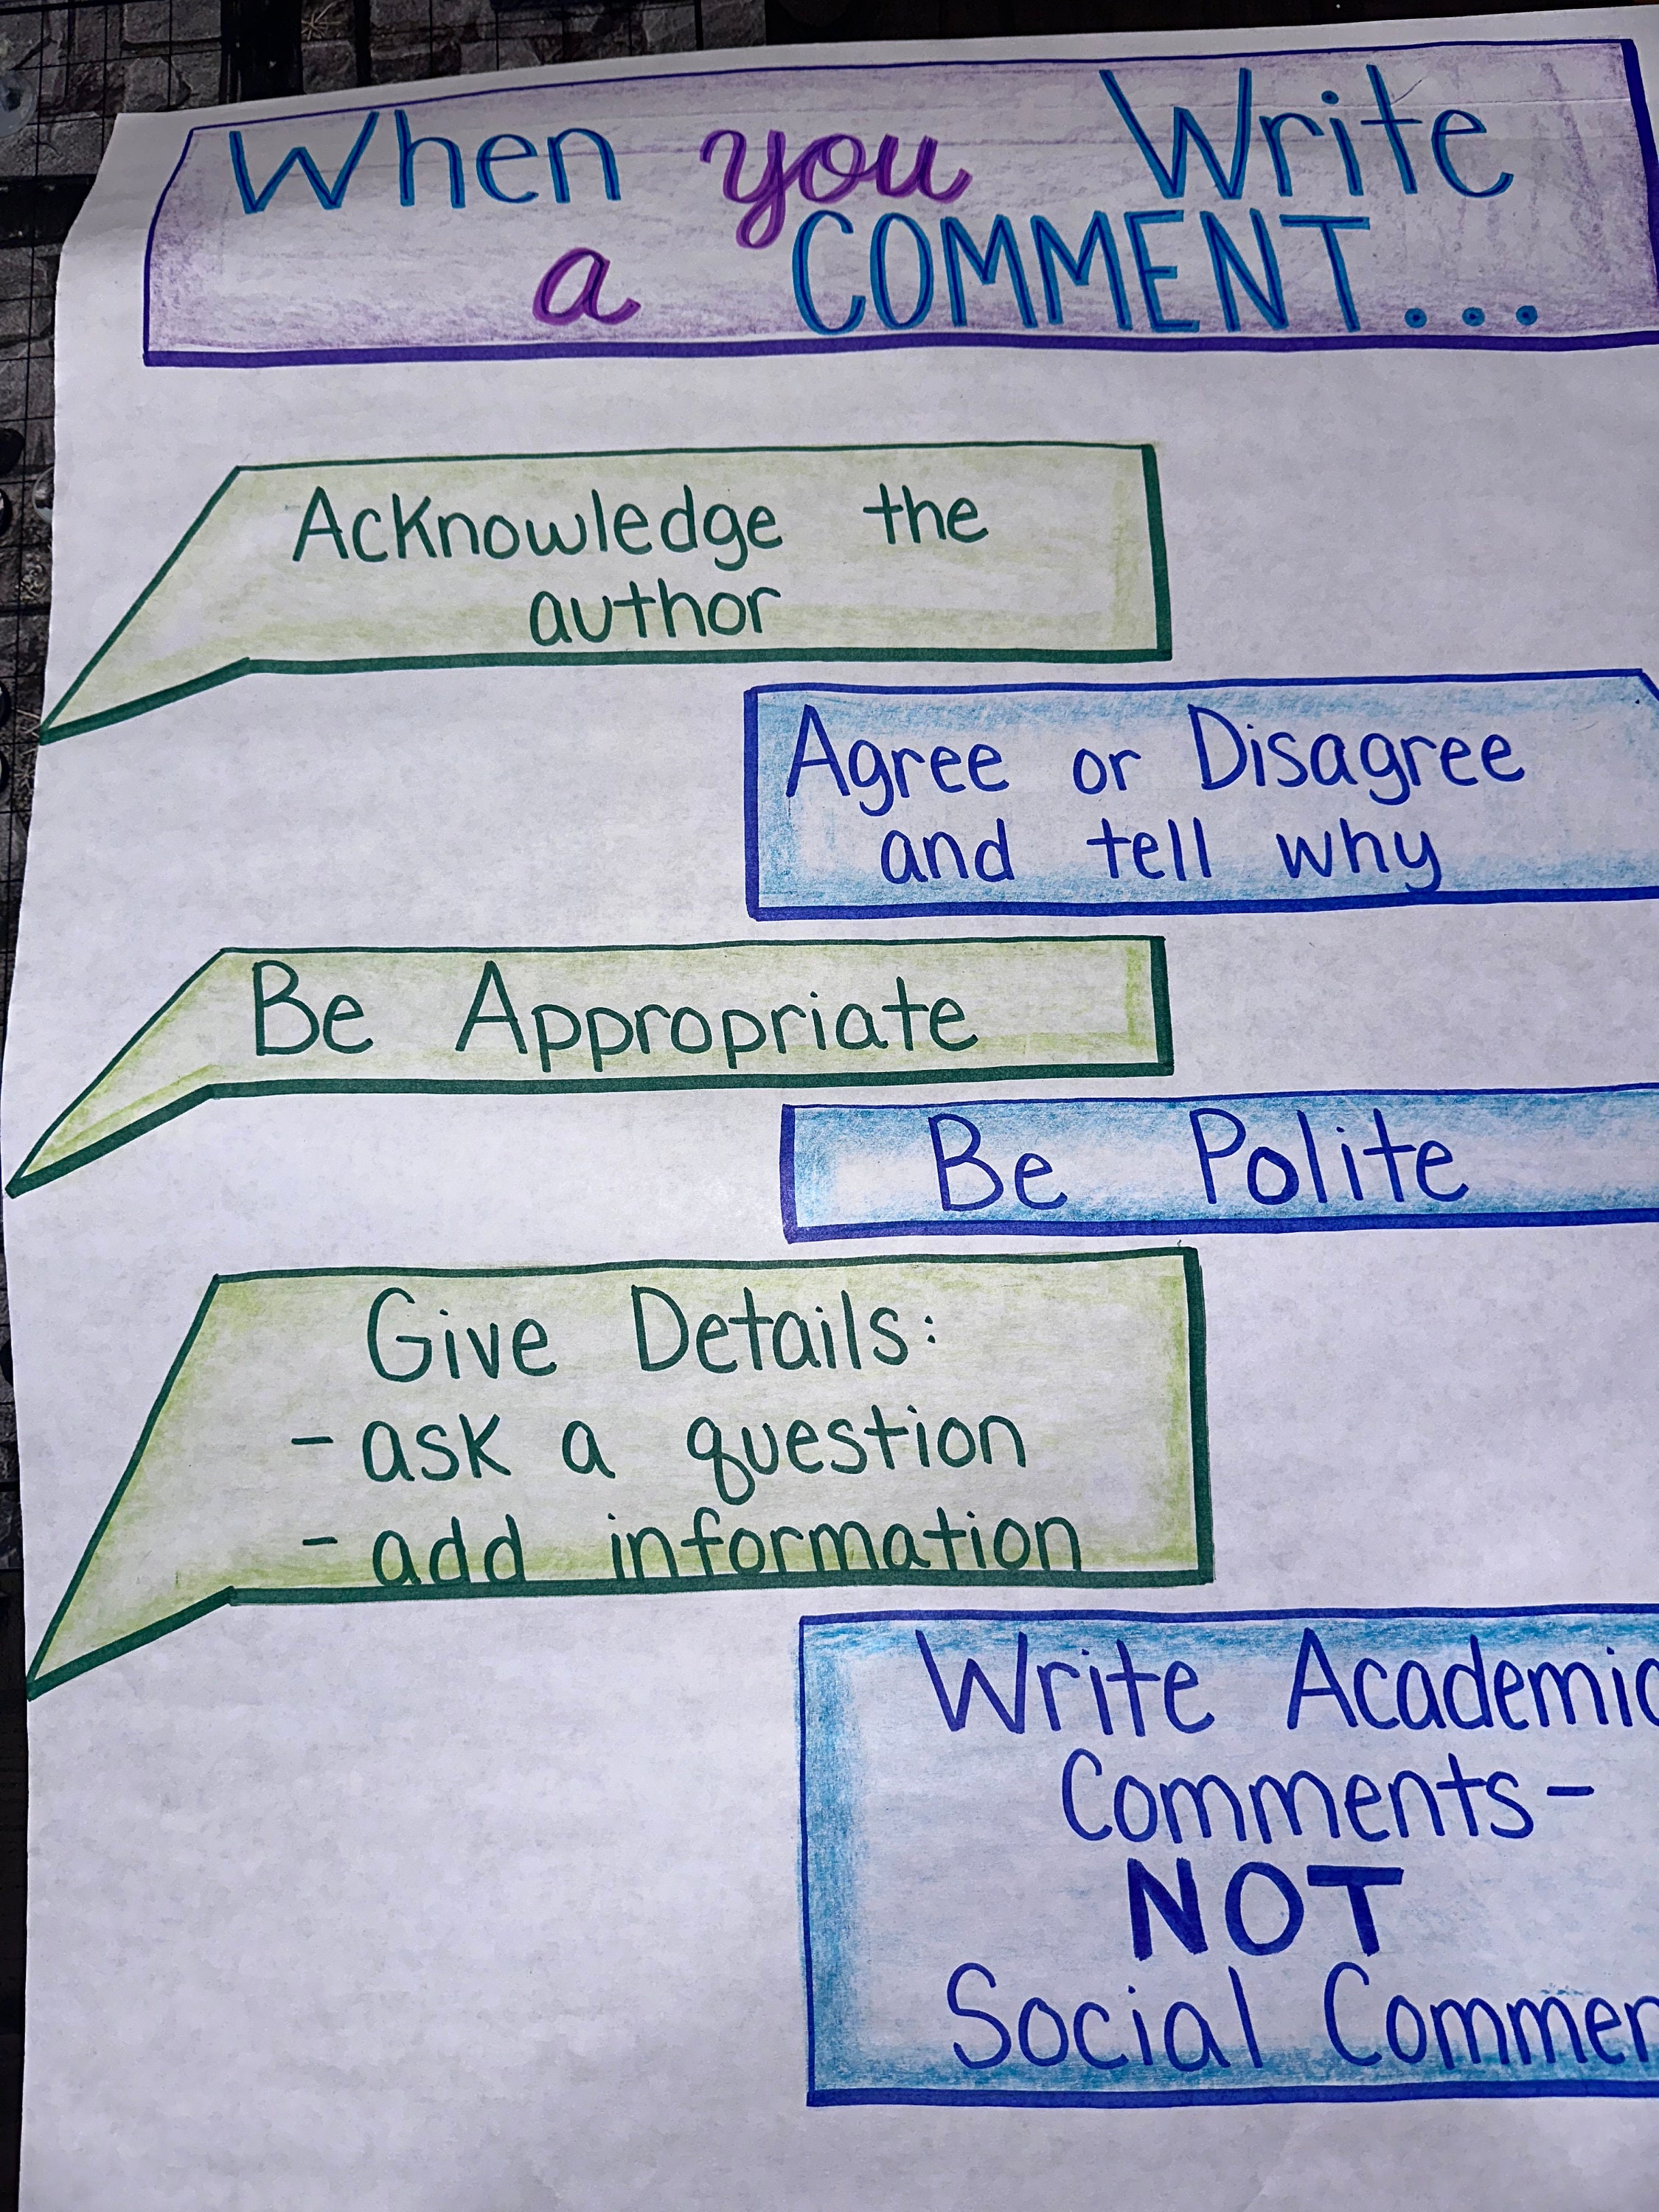 When you Write
a COMMENT...
Acknowledge the
author
Agree or Disagree
and tell why
Be Appropriate
Be Polite
Give Details:
- ask a question
- add information
Write Academic
Comments-
NOT
Social